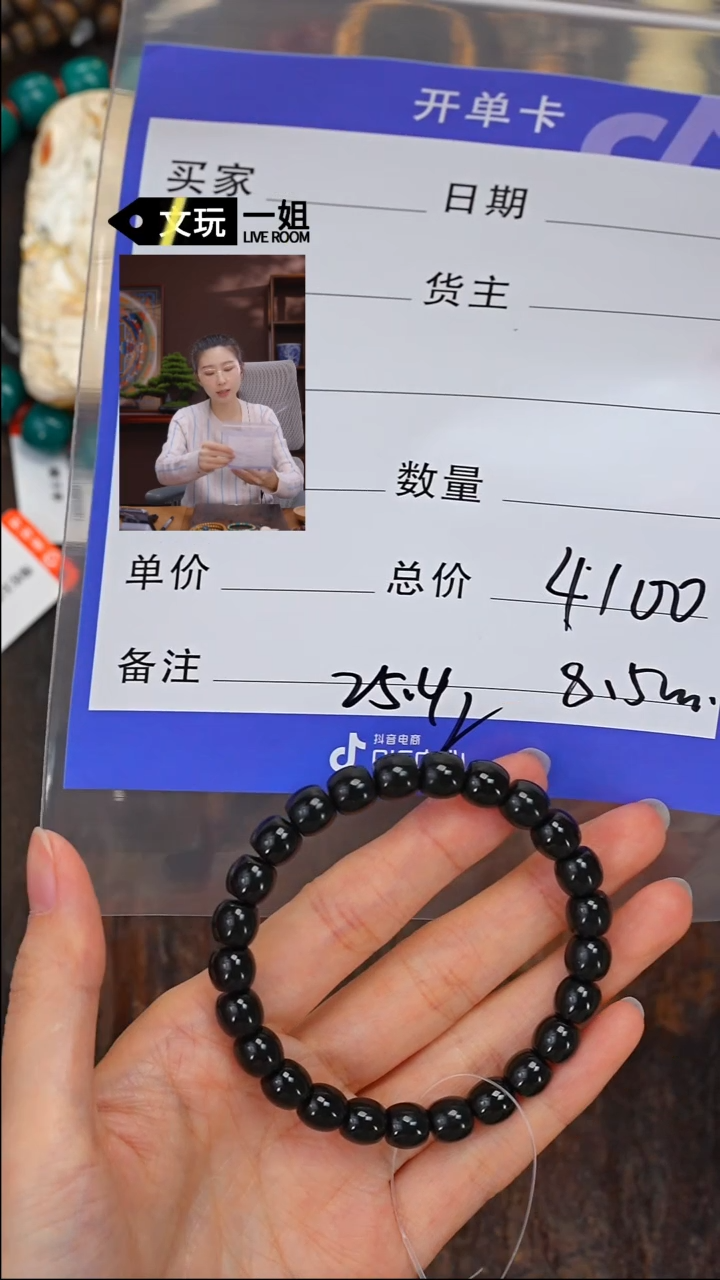 开单卡
买家
日期
文玩 一姐
LIVE ROOM
货主
数量
单价
总价 4100
备注 25.4 8.5m.
抖音电商